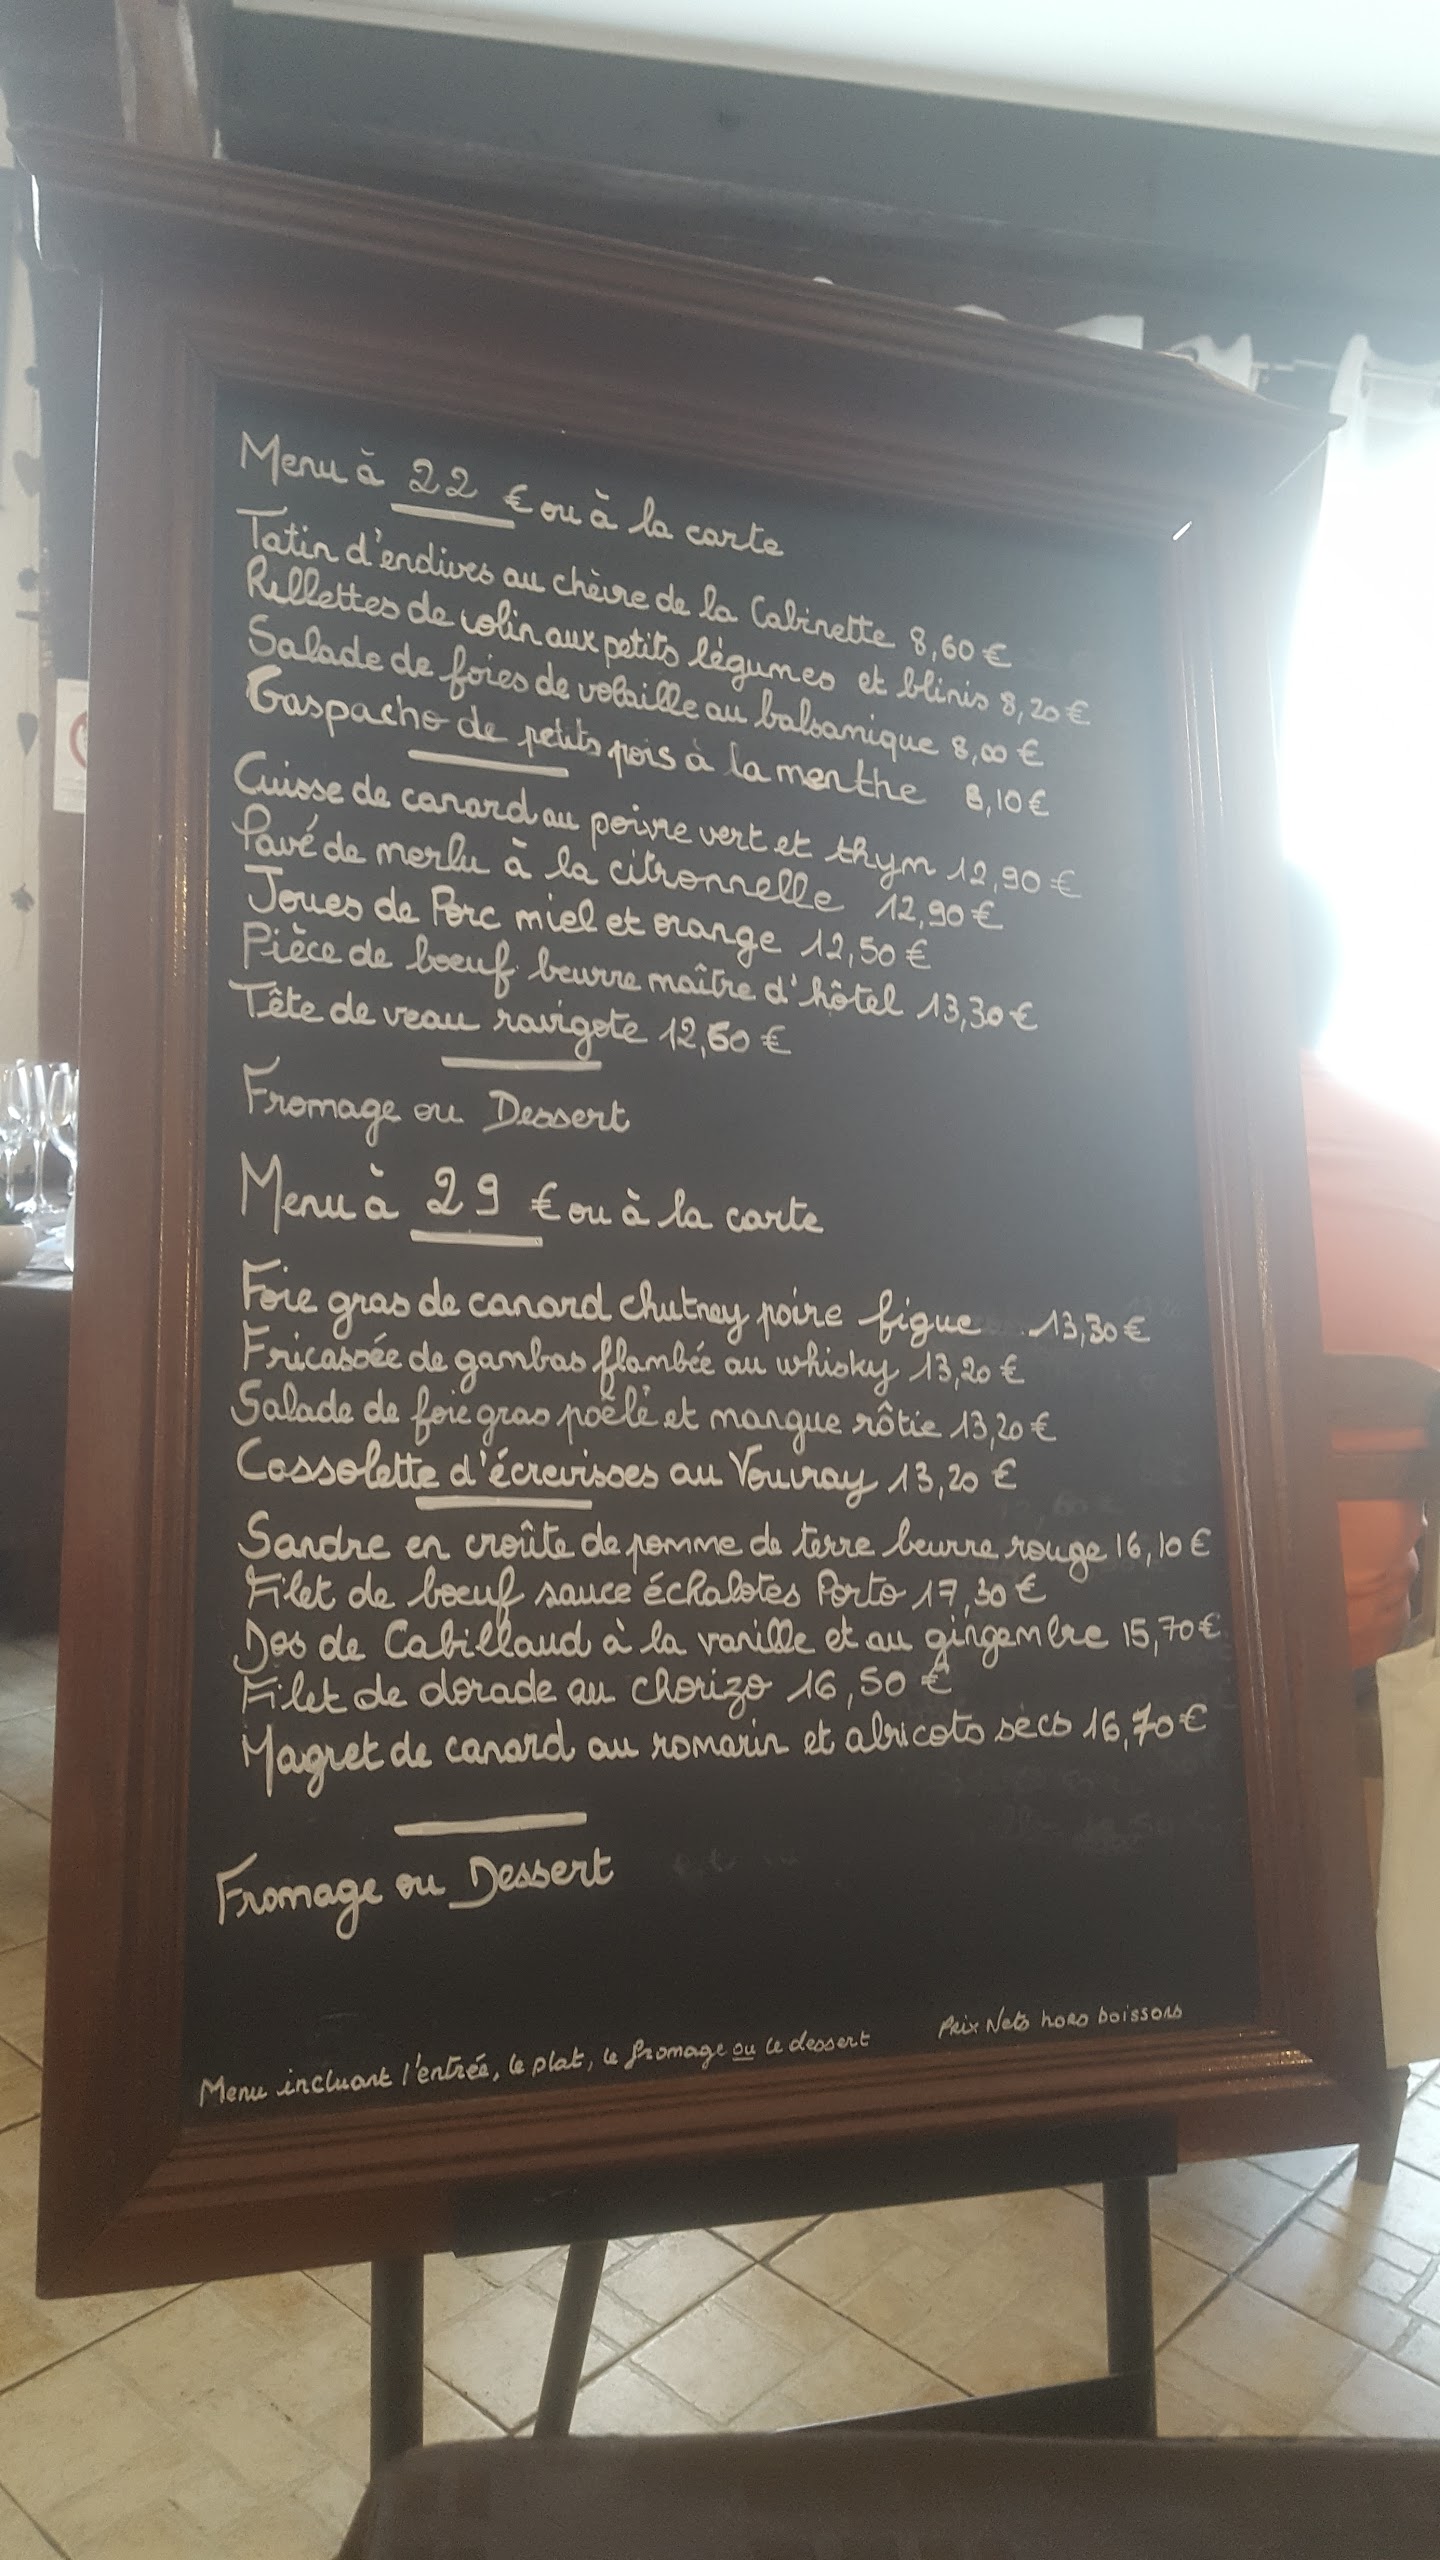 Menu à 22 € ou à la carte
Tatin d'endives au chèvre de la Cabinette 8,60 €
Rillettes de colin aux petits légumes et blinis 8,20 €
Salade de foies de volaille au balsamique 8,00 €
Gaspacho de petits pois à la menthe 8,10 €
Cuisse de canard au poivre vert et thym 12,90 €
Pavé de merlu à la citronnelle 12,90 €
Joues de Porc miel et orange 12,50 €
Pièce de boeuf beurre maître d'hôtel 13,30 €
Tête de veau ravigote 12,60 €
Fromage ou Dessert
Menu à 29 € ou à la carte
Foie gras de canard chutney poire figue 13,30 €
Fricassée de gambas flambée au whisky 13,20 €
Salade de foie gras poêlé et mangue rôtie 13,20 €
Cassolette d'écrevisses au Vouvray 13,20 €
Sandre en croûte de pomme de terre beurre rouge 16,10 €
Filet de boeuf sauce échalotes Porto 17,30 €
Dos de Cabillaud à la vanille et au gingembre 15,70 €
Filet de dorade au chorizo 16,50 €
Magret de canard au romarin et abricots secs 16,70 €
Fromage ou Dessert
Menu incluant l'entrée, le plat, le fromage ou le dessert
Prix Nets hors boissons